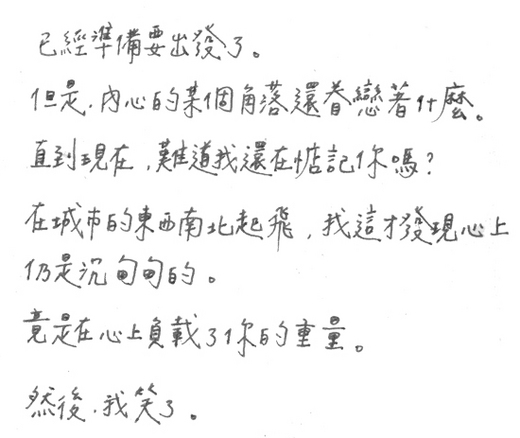 已經準備要出發了。
但是,內心的某個角落還眷戀著什麼。
直到現在,難道我還在惦記你嗎?
在城市的東西南北起飛,我這才發現心上
仍是沉甸甸的。
竟是在心上負載了你的重量。
然後,我笑了。